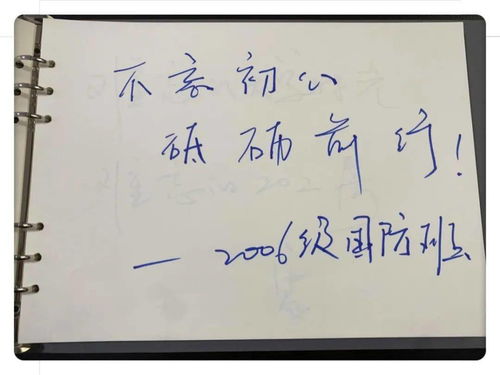 不忘初心
砥砺前行!
— 2006级国防班